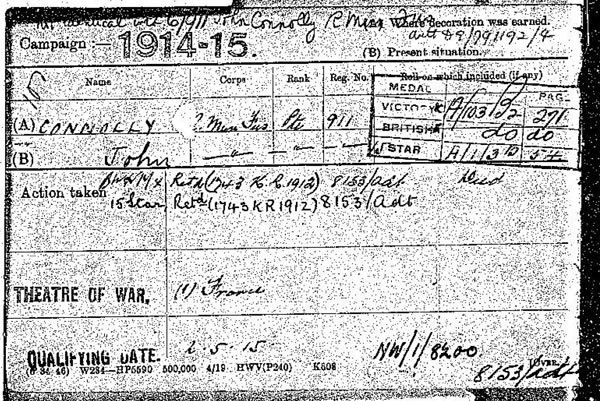 John Connolly R. Mun. Fus. Where decoration was earned.
Campaign :— 1914-15.
(B) Present situation.
Name Corps Rank Reg. No. Roll on which included (if any)
MEDAL PAGE
(A) CONNOLLY R. Mun Fus Pte 911 VICTORY 271
BRITISH do do
(B) John — " — — " — — " — STAR 54
Action taken Retd (1743 K.R. 1912) 8153/Adt
15 Star Retd (1743 KR 1912) 8153/Adt
THEATRE OF WAR. (1) France
QUALIFYING DATE. 2-5-15 NW/1/8200.
(6 34 46) W234—HP5590 500,000 4/19 HWV(P240) K608
8153/adt